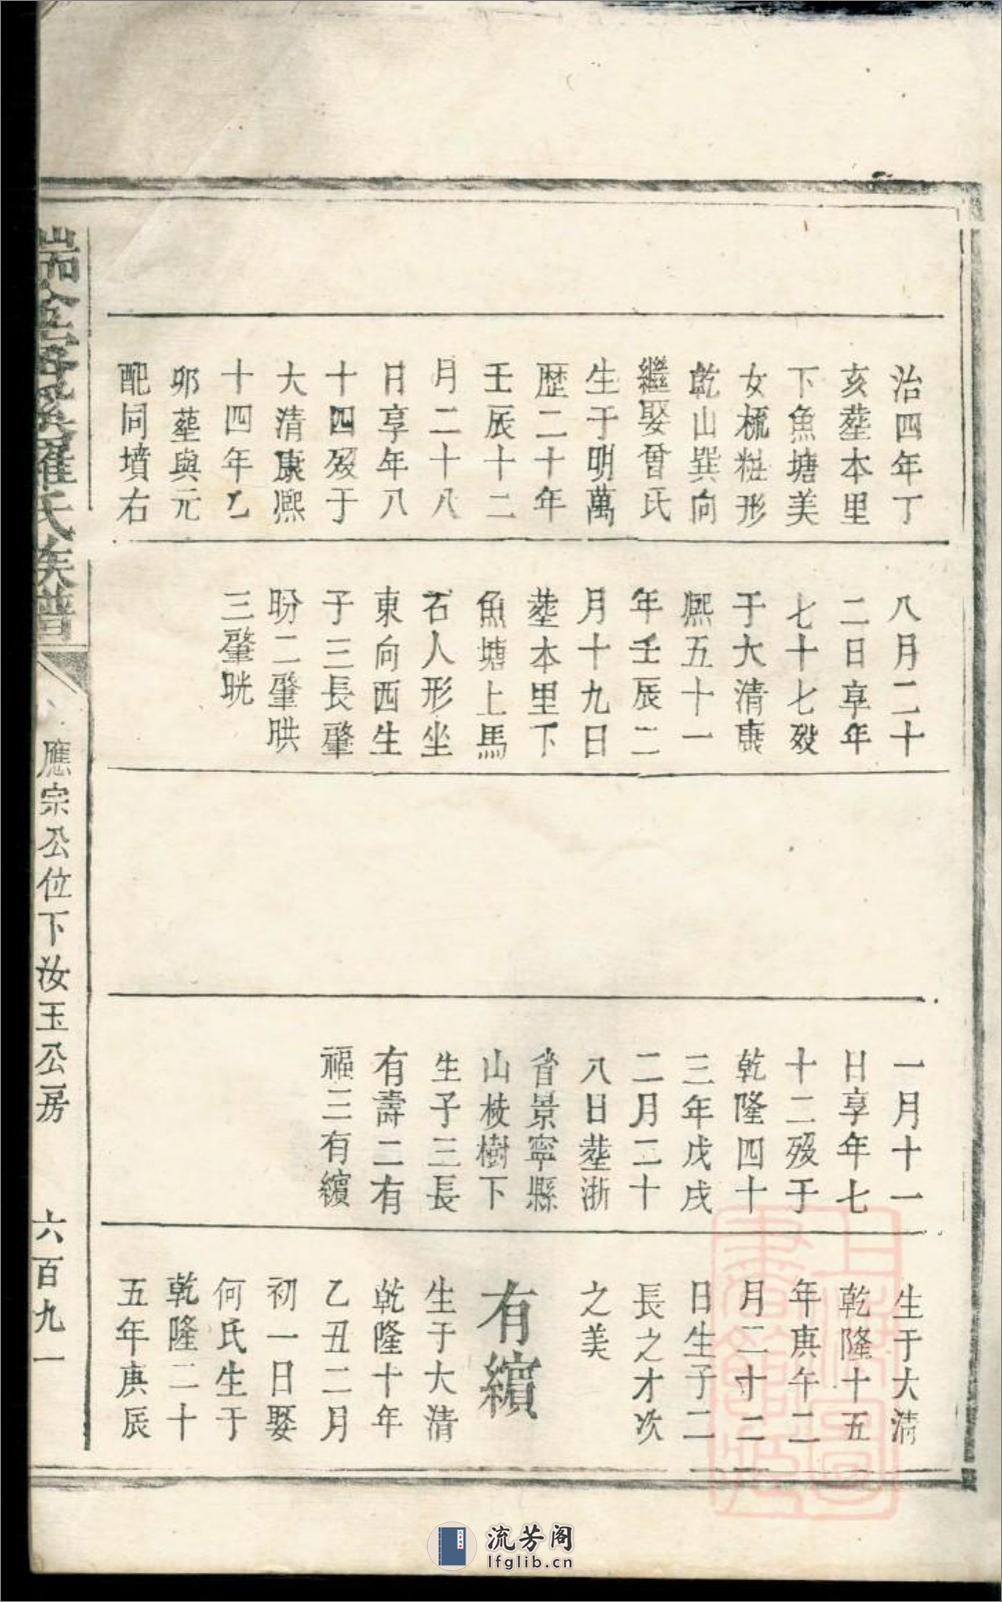 治四年丁
亥塟本里
下魚塘美
女梳粧形
乾山巽向
繼娶曾氏
生于明萬
歷二十年
壬辰十二
月二十八
日享年八
十四歿于
大清康熙
十四年乙
卯塟與元
配同墳右
八月二十
二日享年
七十七歿
于大清康
熙五十一
年壬辰二
月十九日
塟本里下
魚塘上馬
石人形坐
東向西生
子三長肇
昐二肇晎
三肇晄
一月十一
日享年七
十二歿于
乾隆四十
三年戊戌
二月二十
八日塟浙
省景寧縣
山枝樹下
生子三長
有壽二有
福三有繽
生于大清
乾隆十五
年庚午二
月二十二
日生子二
長之才次
之美
有繽
生于大清
乾隆十年
乙丑二月
初一日娶
何氏生于
乾隆二十
五年庚辰
羅氏族譜
應宗公位下汝玉公房
六百九一
流芳阁
lfglib.cn